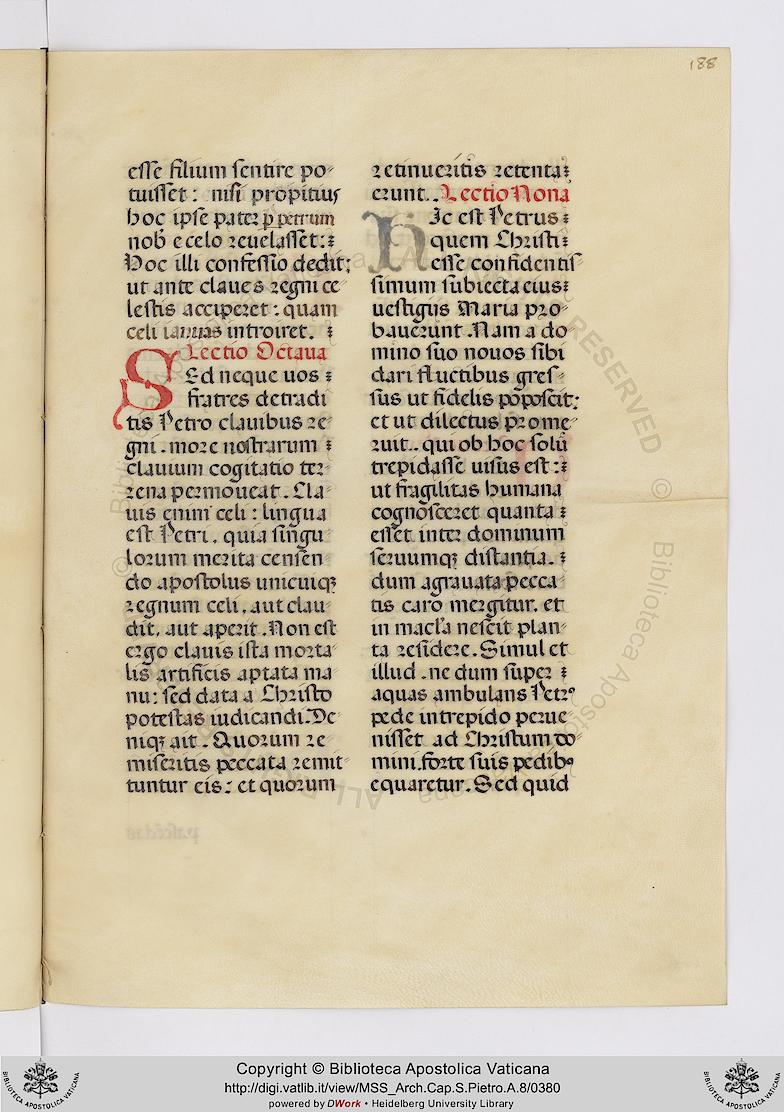 188
esse filium sentire po-
tuisset: nisi propitius
hoc ipse pater p̱ petrum
nob̾ e celo reuelasset:
Hoc illi confessio dedit;
ut ante claues regni ce
lestis acciperet: quam
celi ianuas introiret.
Lectio Octaua
Sed neque uos
fratres de tradi
tis Petro clauibus re-
gni. more nostrarum
clauium cogitatio ter-
rena permoueat. Cla-
uis enim celi: lingua
est Petri. quia singu
lorum merita censen-
do apostolus unicuiqꝫ
regnum celi. aut clau-
dit, aut aperit. Non est
ergo clauis ista morta-
lis artificis aptata ma
nu: sed data a Christo
potestas iudicandi. De-
niqꝫ ait. Quorum re-
miseritis peccata remit-
tuntur eis: et quorum
retinueritis retenta
erunt. Lectio Nona
Hic est Petrus
quem Christi
esse confidentis
simum subiecta eius
uestigiis Maria pro-
bauerunt. Nam a do
mino suo nouos sibi
dari fluctibus gres-
sus ut fidelis poposcit:
et ut dilectus prome-
ruit.. qui ob hoc solū
trepidasse uisus est:
ut fragilitas humana
cognosceret quanta
esset inter dominum
seruumqꝫ distantia.
dum agrauata pecca-
tis caro mergitur. et
in macl'a nescit plan-
ta residere. Simul et
illud. ne dum super
aquas ambulans Petrꝰ
pede intrepido perue-
nisset ad Christum do-
mini. forte suis pedibꝰ
equaretur. Sed quid
Copyright © Biblioteca Apostolica Vaticana
http://digi.vatlib.it/view/MSS_Arch.Cap.S.Pietro.A.8/0380
powered by DWork • Heidelberg University Library
BIBLIOTECA APOSTOLICA VATICANA
BIBLIOTECA APOSTOLICA VATICANA